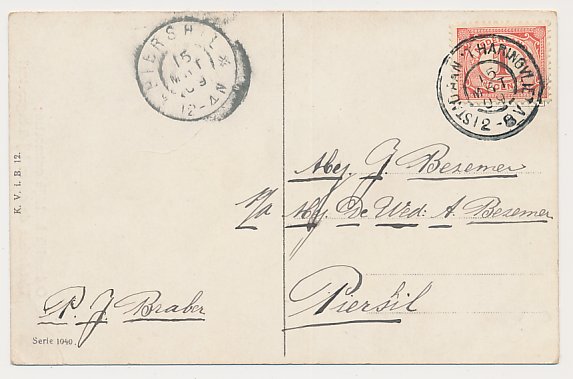 PIERSHIL
15
MRT
09
12-4N
ST: AAN 'T HARINGVLIET
15
MRT
09
12-8V
K. V. i. B. 12.
Mej J. Bezemer
p/a Mej. De Wed: A. Bezemer
Piershil
P. J. Braber
Serie 1940.